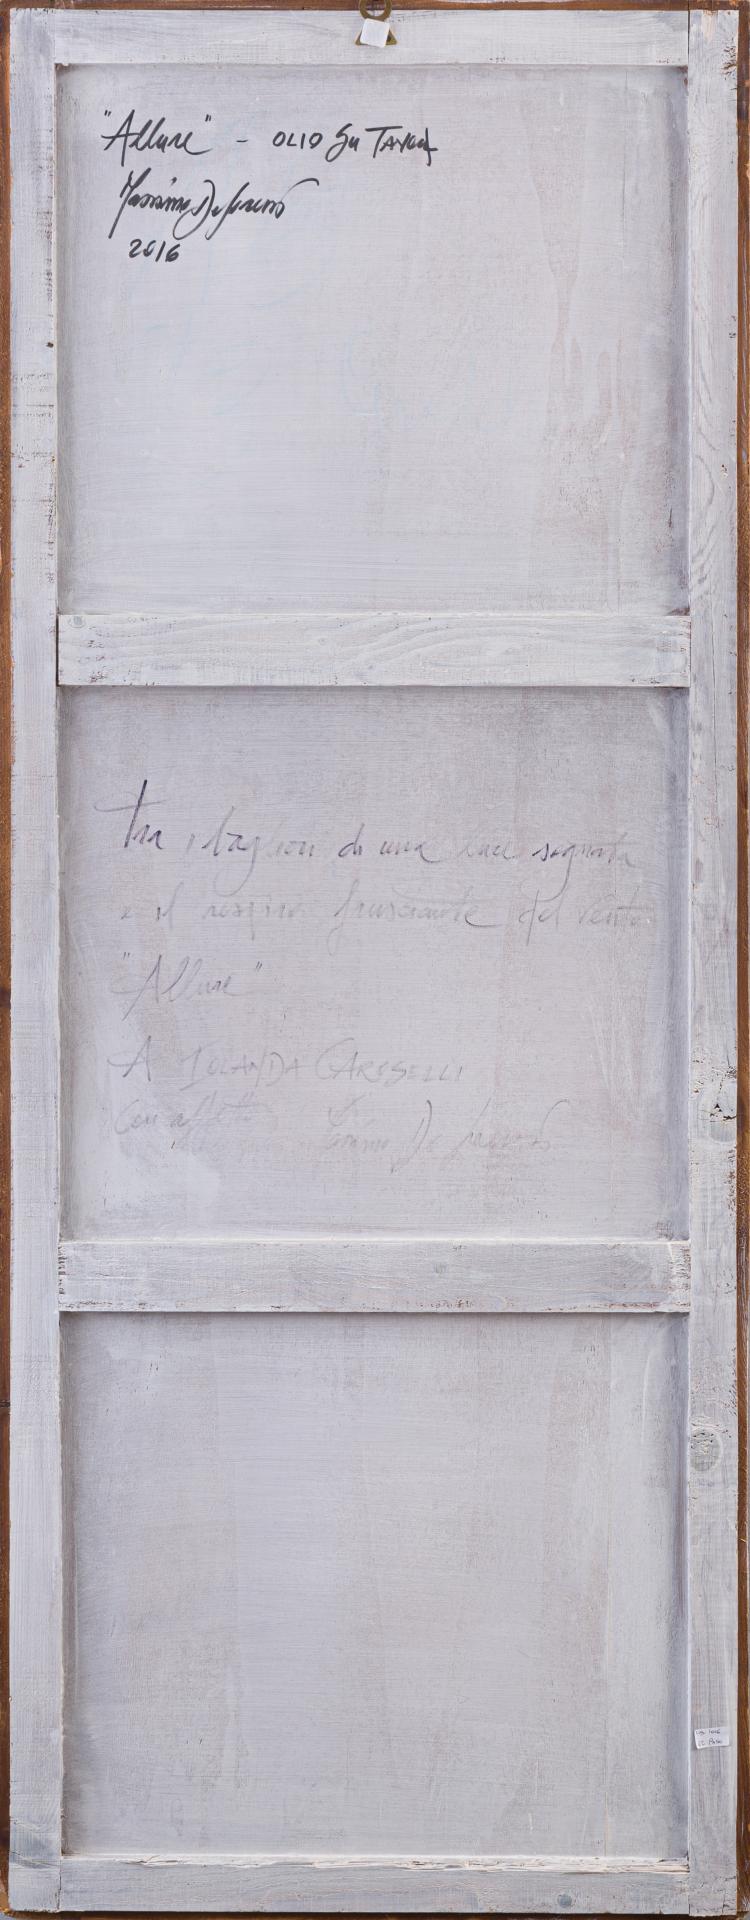 "Allure" - OLIO Su TAVOLA
Massimo De Lorenzi
2016
Tra i bagliori di una luce segnata
e il respiro frusciante del vento
"Allure"
A IOLANDA CAROSELLI
Con affetto De